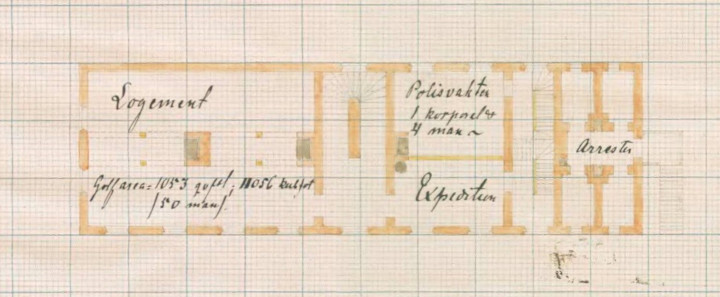 Logement
Golfarea = 1053 qvfot; 11056 kubfot
(50 man)
Polisvakten
1 korporal o
4 man
Expedition
Arrester